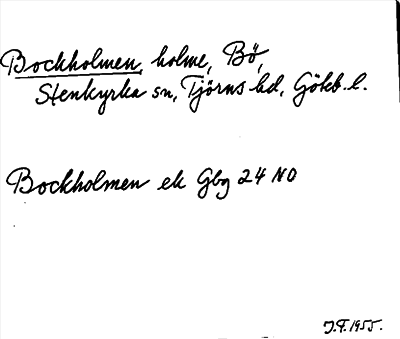 Bockholmen, holme, Bö,
Stenkyrka sn, Tjörns hd, Göteb. l.
Bockholmen ek Gbg 24 NO
J.F. 1955.